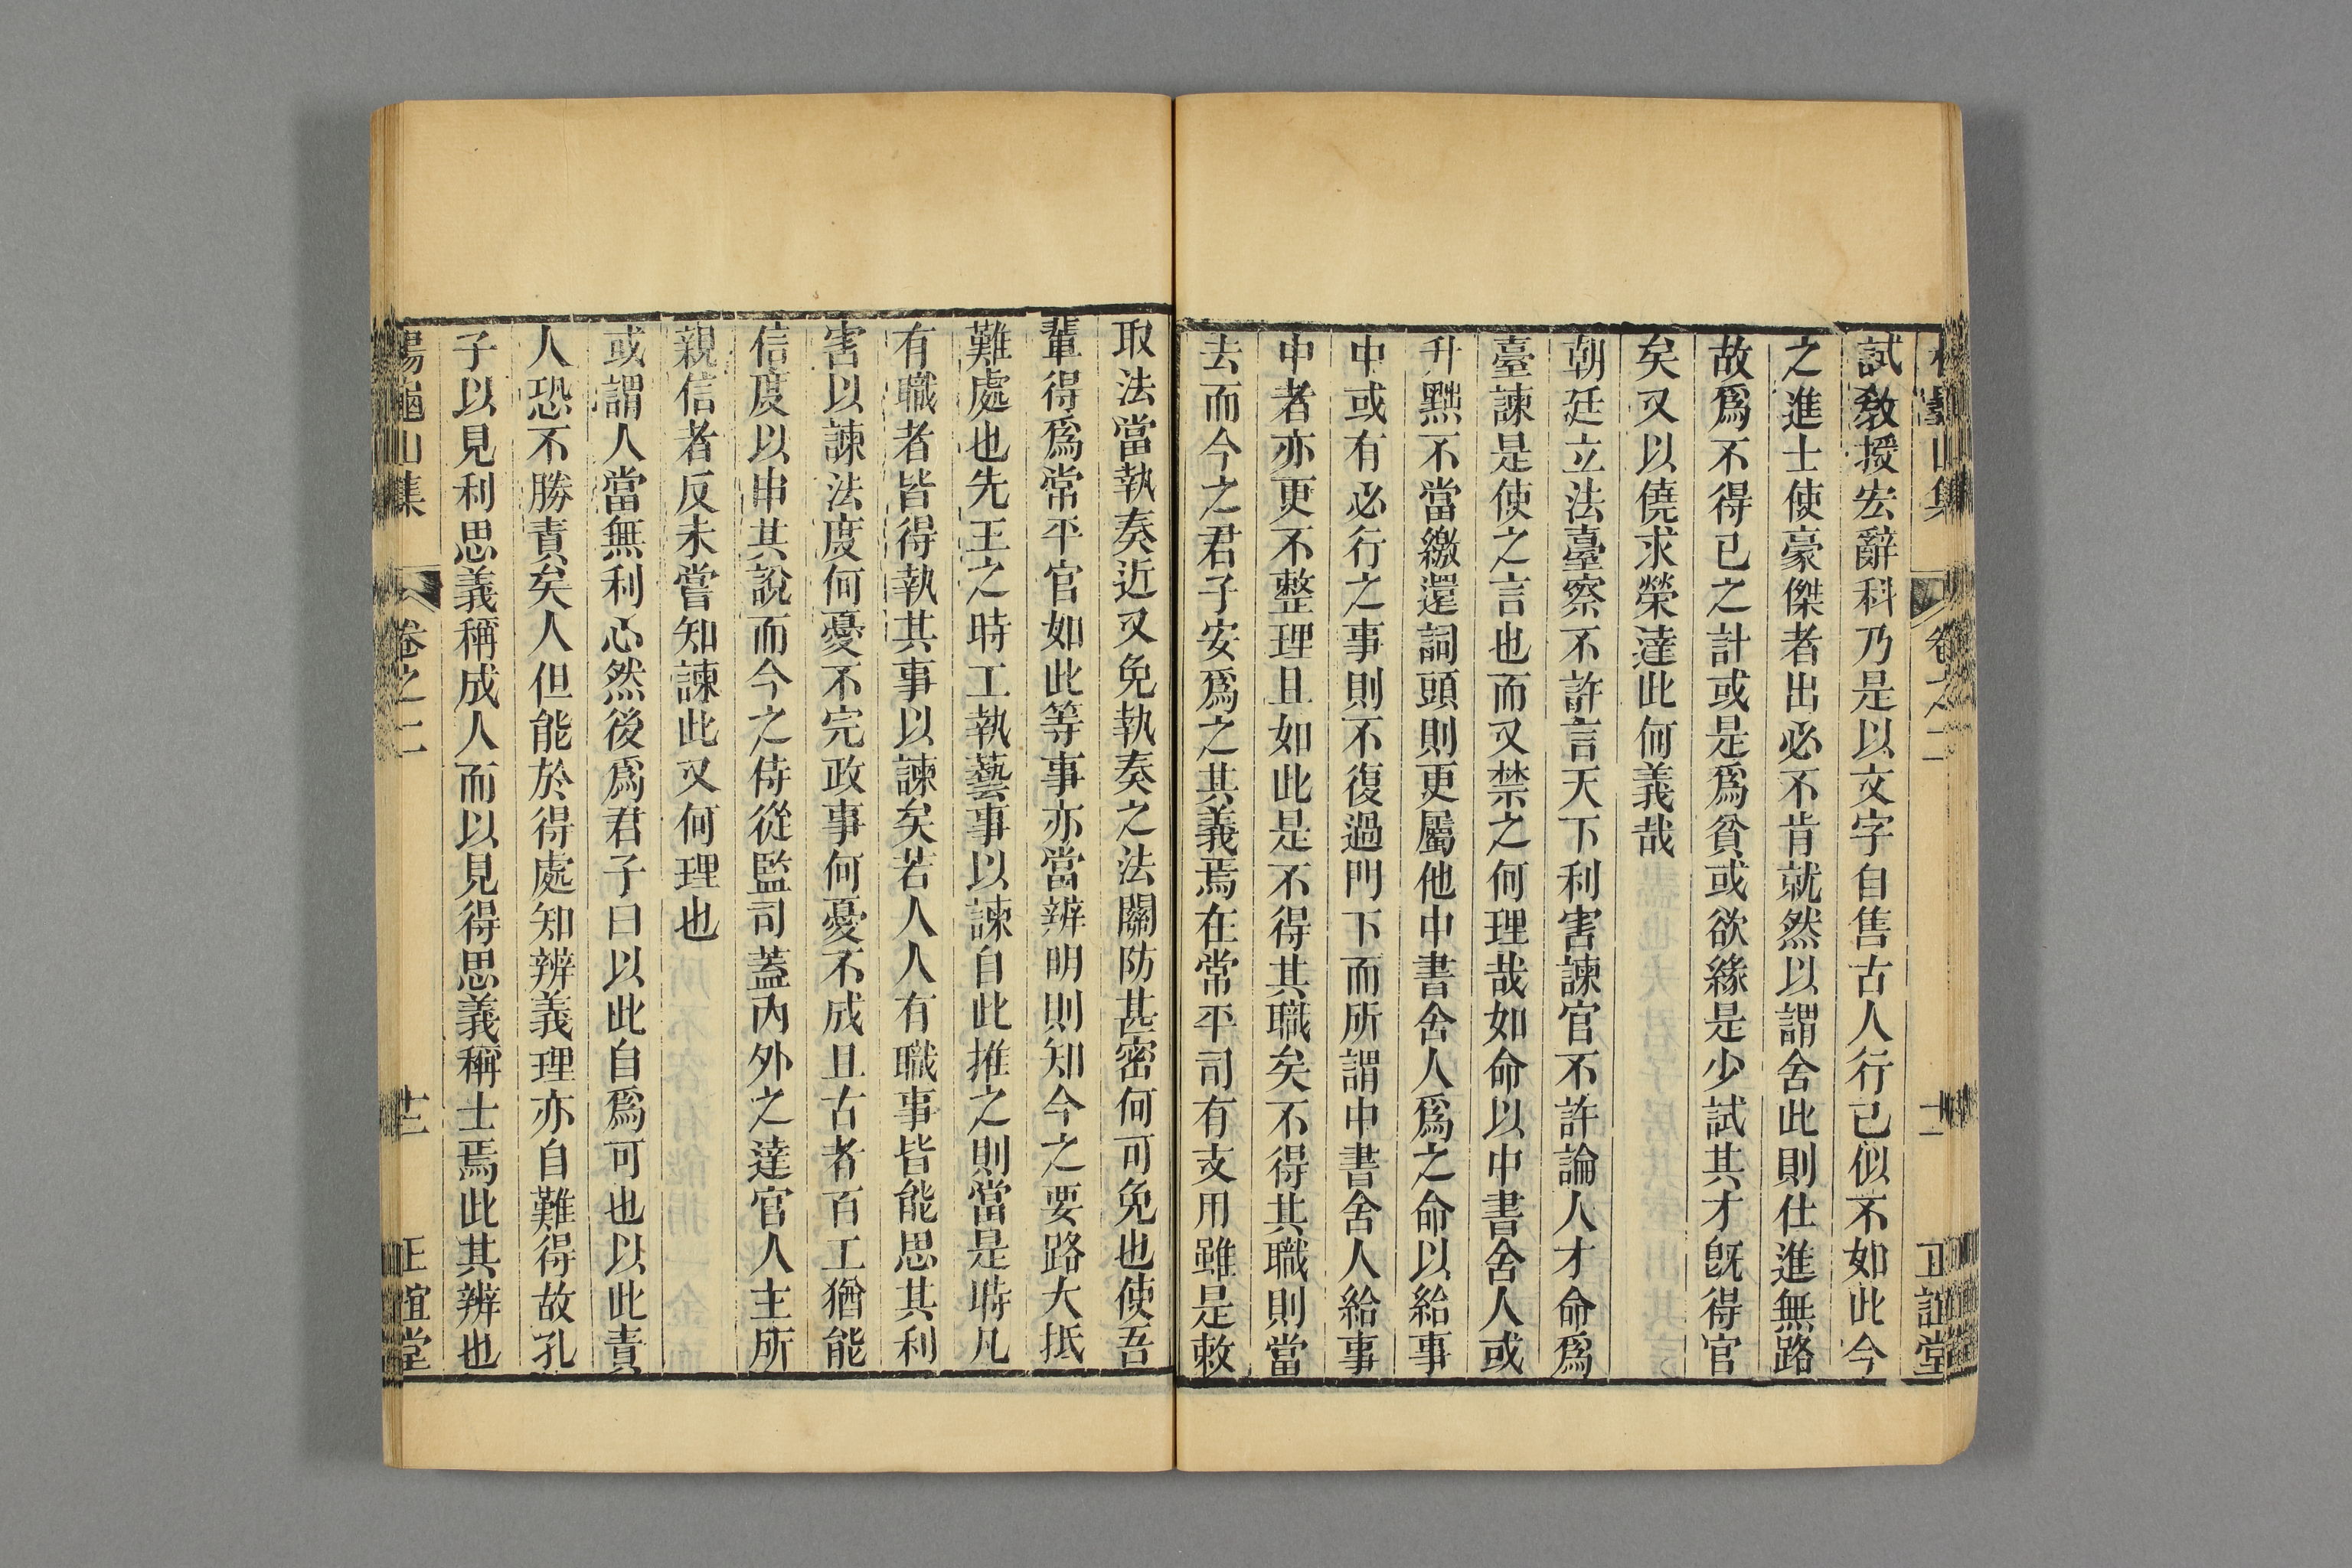 試教授宏辭科乃是以文字自售古人行已似不如此今
之進士使豪傑者出必不肯就然以謂舍此則仕進無路
故爲不得已之計或是爲貧或欲緣是少試其才旣得官
矣又以僥求榮達此何義哉
朝廷立法臺察不許言天下利害諫官不許論人才命爲
臺諫是使之言也而又禁之何理哉如命以中書舍人或
升黜不當繳還詞頭則更屬他中書舍人爲之命以給事
中或有必行之事則不復過門下而所謂中書舍人給事
中者亦更不整理且如此是不得其職矣不得其職則當
去而今之君子安爲之其義焉在常平司有支用雖是敕
取法當執奏近又免執奏之法關防甚密何可免也使吾
輩得爲常平官如此等事亦當辨明則知今之要路大抵
難處也先王之時工執藝事以諫自此推之則當是時凡
有職者皆得執其事以諫矣若人人有職事皆能思其利
害以諫法度何憂不完政事何憂不成且古者百工猶能
信度以申其說而今之侍從監司蓋內外之達官人主所
親信者反未嘗知諫此又何理也
或謂人當無利心然後爲君子曰以此自爲可也以此責
人恐不勝責矣人但能於得處知辨義理亦自難得故孔
子以見利思義稱成人而以見得思義稱士焉此其辨也
楊龜山集 卷之二 十二 正誼堂